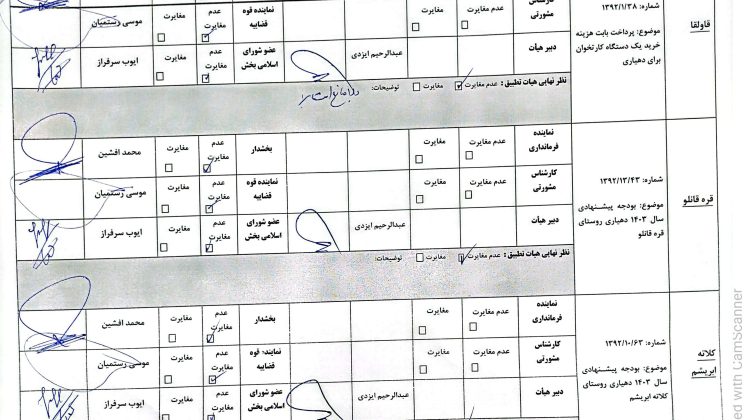 قاولقا
شماره: ۱۳۹۲/۱/۳۸
موضوع: پرداخت بابت هزینه
خرید یک دستگاه کارتخوان
برای دهیاری
کارشناس
مشورتی
عدم مغایرت
مغایرت
نماینده قوه
قضاییه
عدم
مغایرت
مغایرت
موسی رستمیان
دبیر هیأت
عبدالرحیم ایزدی
عضو شورای
اسلامی بخش
عدم
مغایرت
مغایرت
ایوب سرفراز
نظر نهایی هیات تطبیق: عدم مغایرت مغایرت توضیحات:
قره قانلو
شماره: ۱۳۹۲/۱۳/۴۳
موضوع: بودجه پیشنهادی
سال ۱۴۰۳ دهیاری روستای
قره قانلو
نماینده
فرمانداری
عدم مغایرت
مغایرت
بخشدار
عدم
مغایرت
مغایرت
محمد افشین
کارشناس
مشورتی
عدم مغایرت
مغایرت
نماینده قوه
قضاییه
عدم
مغایرت
مغایرت
موسی رستمیان
دبیر هیات
عبدالرحیم ایزدی
عضو شورای
اسلامی بخش
عدم
مغایرت
مغایرت
ایوب سرفراز
نظر نهایی هیات تطبیق: عدم مغایرت مغایرت توضیحات:
کلاته
ابریشم
شماره: ۱۳۹۲/۱۰/۶۳
موضوع: بودجه پیشنهادی
سال ۱۴۰۳ دهیاری روستای
کلاته ابریشم
نماینده
فرمانداری
عدم مغایرت
مغایرت
بخشدار
عدم
مغایرت
مغایرت
محمد افشین
کارشناس
مشورتی
عدم مغایرت
مغایرت
نماینده قوه
قضاییه
عدم
مغایرت
مغایرت
موسی رستمیان
دبیر هیات
عبدالرحیم ایزدی
عضو شورای
اسلامی بخش
عدم
مغایرت
مغایرت
ایوب سرفراز
with CamScanner